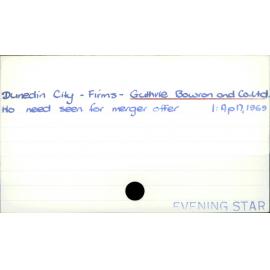 Dunedin City - Firms - Guthrie Bowron and Co. Ltd.
No need seen for merger offer 1: Ap 17, 1969
EVENING STAR